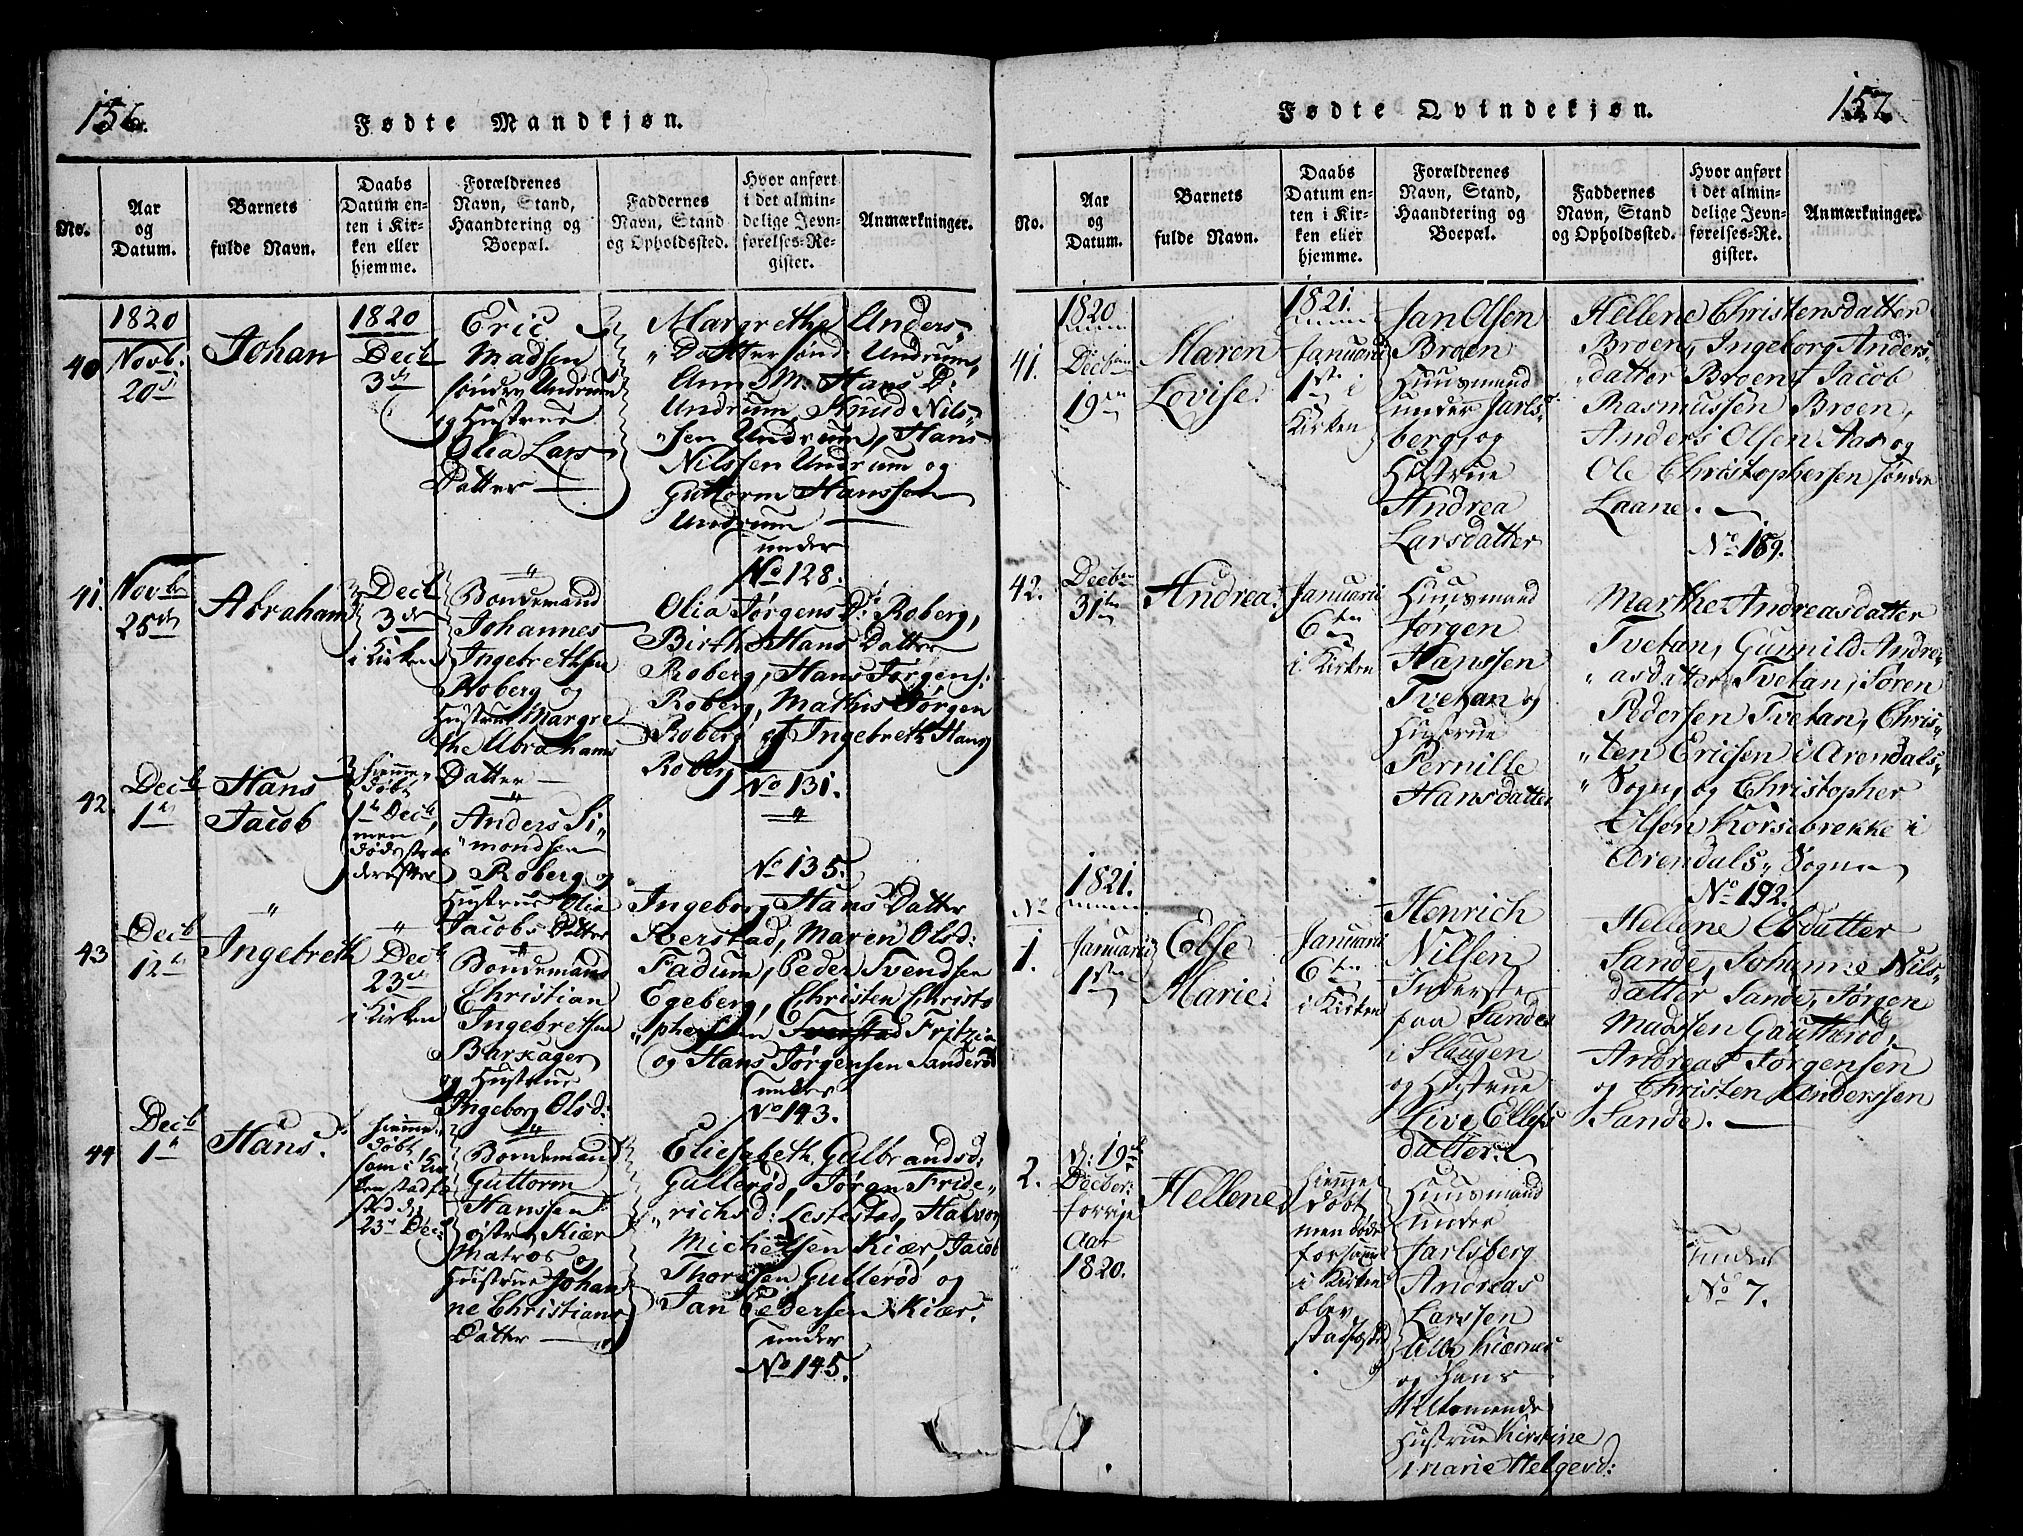 156.
Fødte Mandkjøn.
No.
Aar
og
Datum.
Barnets
fulde Navn.
Daabs
Datum en-
ten i Kir-
ken eller
hjemme.
Forældrenes
Navn, Stand,
Haandtering og
Boepæl.
Faddernes
Navn, Stand
og Opholdssted.
Hvor anført
i det almin-
delige Jevn-
førelses-Re-
gister.
Anmærkninger.
40
1820
Novb:
20de
Johan
1820
Decb
3de
Eric
Madsen
søndre Undrum
og Hustrue
Olia Lars
Datter
Margrethe Anders-
Datter sønd: Undrum,
Ann M: Hans D:
Undrum, Knud Nils-
sen Undrum, Hans
Nilssen Undrum og
Guttorm Hanssen
Undrum
under
No 128.
41.
Novbr
25de
Abraham
Decb
3de
i Kirken
Bondemand
Johannes
Ingebrethsen
Roberg og
Hustrue Margre
the Abrahams
Datter
Olia Jørgens D: Roberg,
Birthe Hans Datter
Roberg, Hans Jørgens:
Roberg, Mathis Jørgen
Roberg, og Ingebreth Hans
Roberg
No 131.
42.
Decb
1te
Hans
Jacob
hjemme-
døbt
1te Decb,
men
døde strax
derefter
Anders Si-
mondsen
Roberg og
Hustrue Olia
Jacobs Datter
No 135.
43
Decb
12te
Ingebreth
Decb
23de
i Kirken
Bondemand
Christian
Ingebretsen
Barkager
og Hustrue
Ingeborg Olsd:
Ingeborg Hans Datter
Sverstad, Maren Olsd:
Fadum, Peder Svendsen
Egeberg, Christen Christo
phersen Fritzøe
og Hans Jørgensen Sanderød
under
No 143.
44
Decb
1te
Hans.
hjemme-
døbt
som i Kir
ken stadfæ
sted d.
23de Dec:
Bondemand
Guttorm
Hanssen
østre Kiær
Matros og
Hustrue Johan
ne Christians
Datter
Elisabeth Gulbrandsd:
Gullerød, Jøran Fride-
richsd: Lestestad, Halvor
Michelsen Kiær, Jacob
Thorsen Gullerød og
Jan Pedersen Kiær.
under
No 145.
157.
Fødte Qvindekjøn.
No.
Aar
og
Datum.
Barnets
fulde Navn.
Daabs
Datum en-
ten i Kir-
ken eller
hjemme.
Forældrenes
Navn, Stand,
Haandtering og
Boepæl.
Faddernes
Navn, Stand
og Opholdssted.
Hvor anført
i det almin-
delige Jevn-
førelses-Re-
gister.
Anmærkninger.
41.
1820
Decbr
19en
Maren
Lovise.
1821.
Januarii
1ste i
Kirken
Jan Olsen
Broen
Huusmand
under Jarls-
berg, og
Hustrue
Andrea
Larsdatter
Hellene Christensdatter
Broen, Ingeborg Anders-
datter Broen, Jacob
Rasmussen Broen,
Anders Olsen Aas og
Ole Christophersen søndre
Laane.
No 189.
42.
Decbr
31te
Andrea.
Januarii
6te
i Kirken
Huusmand
Jørgen
Hanssen
Tvetan og
Hustrue
Pernille
Hansdatter
Marthe Andreasdatter
Tvetan, Gunnild Andre-
asdatter Tvetan, Søren
Pedersen Tvetan, Chris-
ten Ericsen i Arendals-
Sogn, og Christopher
Olsen Korsebrekke i
Arendals-Sogn
No 192.
No
1.
1821.
Januarii
1ste
Else
Marie.
Januarii
6te
i Kirken
Henrich
Nilsen
Inderste
paa Sande
i Slaugen
og Hustrue
Live Ellefs
datter.
Hellene Olsdatter
Sande, Johanne Nils-
datter Sande, Jørgen
Madssen Gautherød,
Andreas Jørgensen
og Christen Anderssen
Sande.
2.
d: 19de
Decbr:
forrige
Aar
1820.
Hellene
hjemme
døbt
men døde
forsom
i Kirken
blev
stadfæsted
Huusmand
under
Jarlsberg
Andreas
Larssen
Kiærnes
og Hans
Hustrue Kirstine
Marie Helgesd:
under
No 7.